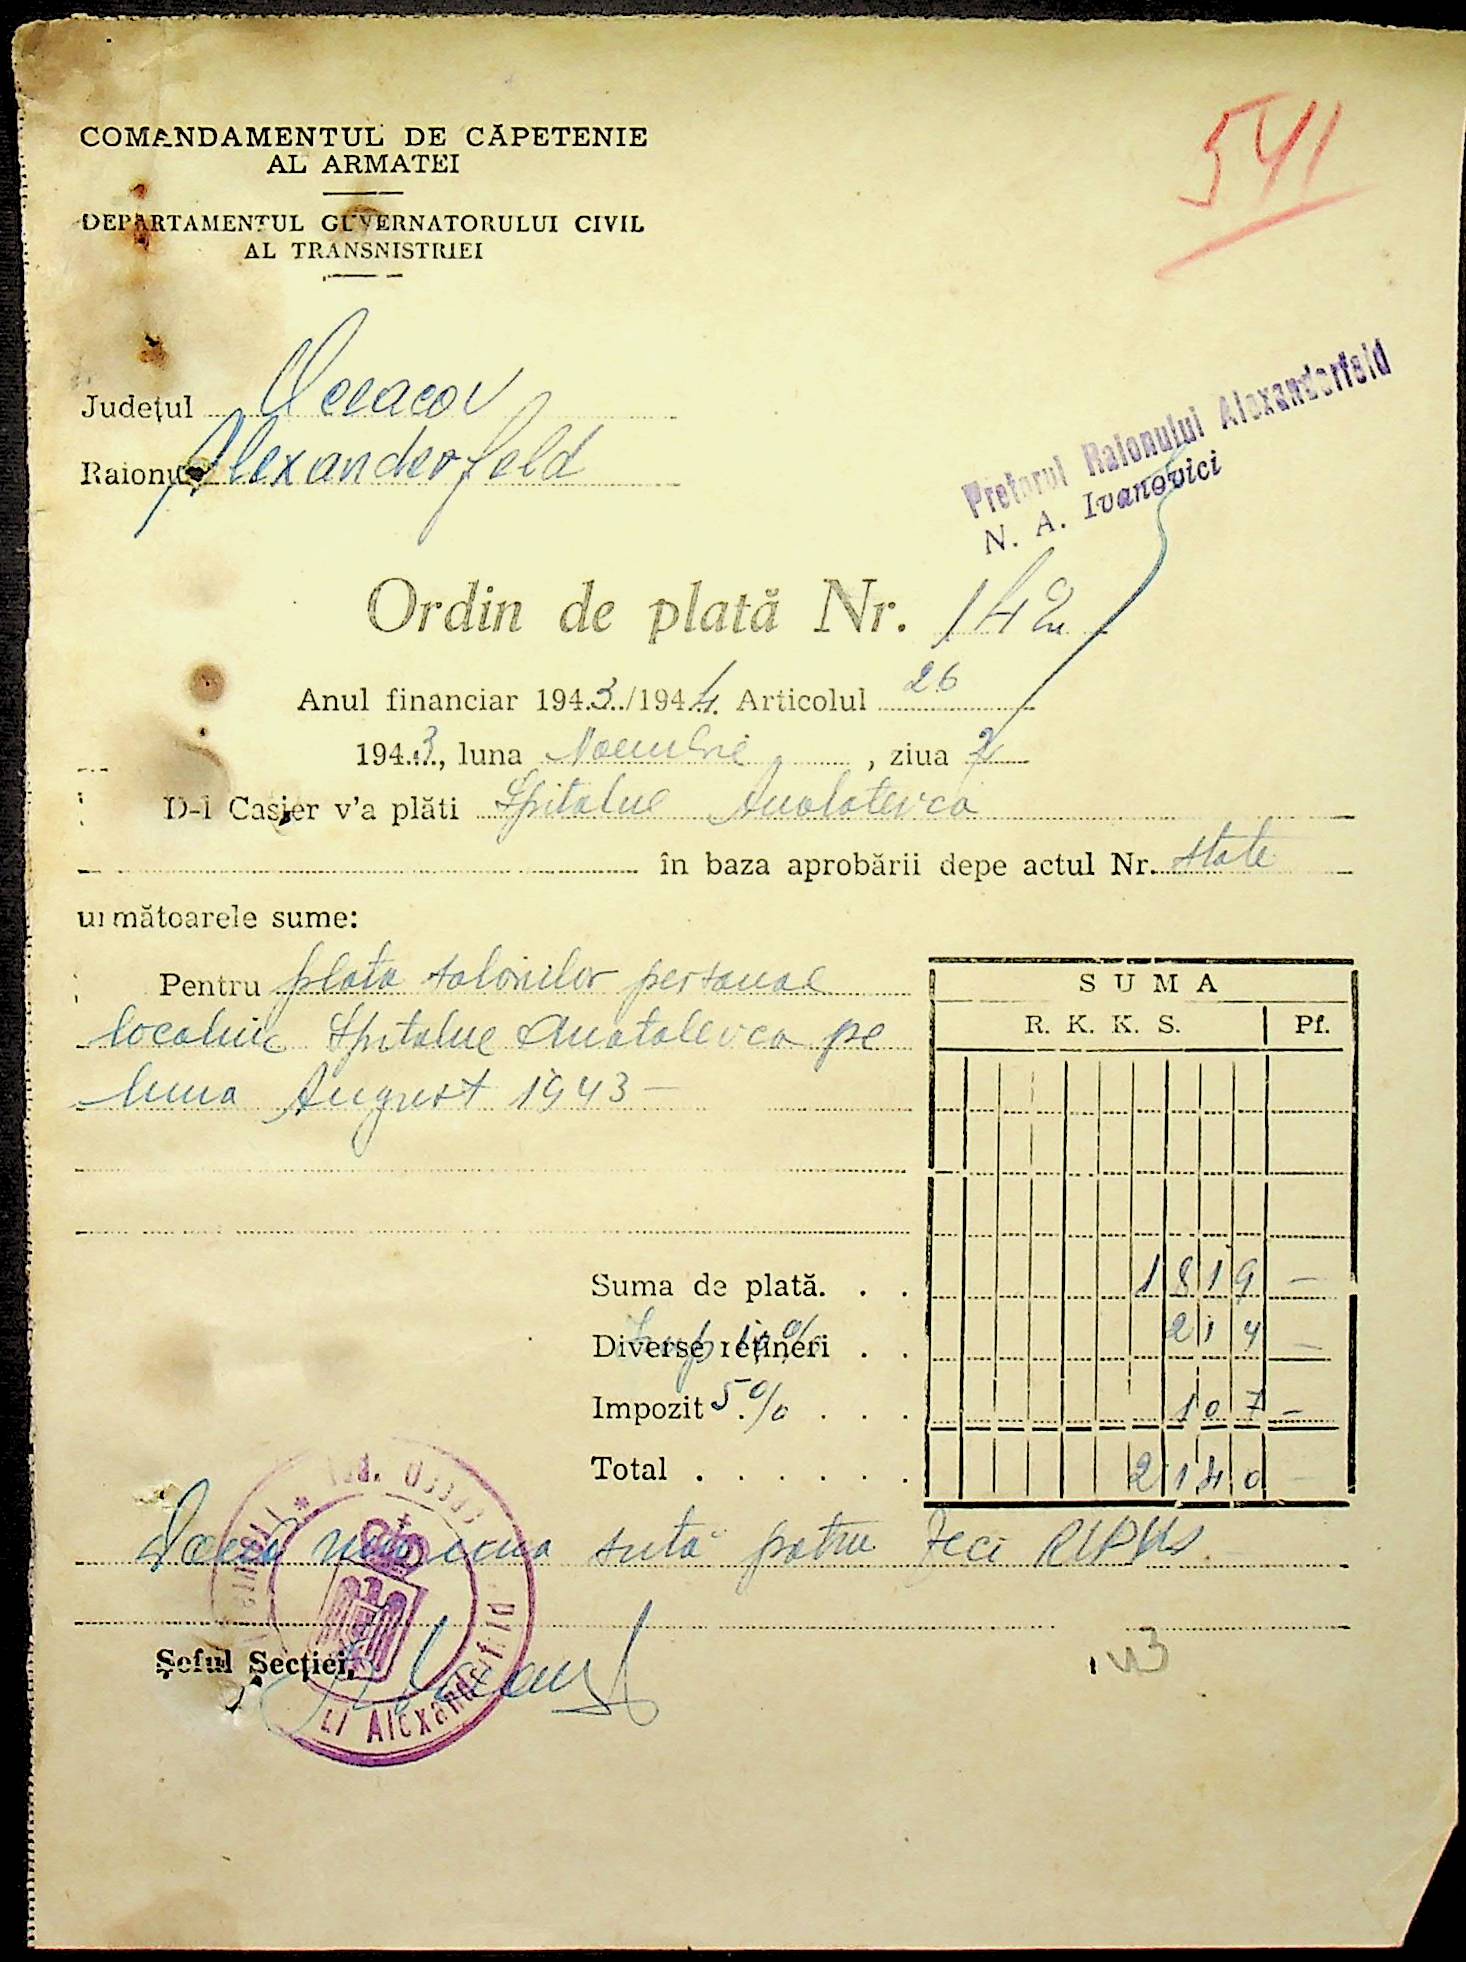 COMANDAMENTUL DE CĂPETENIE
AL ARMATEI
DEPARTAMENTUL GUVERNATORULUI CIVIL
AL TRANSNISTRIEI
541
Județul Oceacov
Raionul Alexanderfeld
Pretorul Raionului Alexanderfeld
N. A. Ivanovici
Ordin de plată Nr. 142
Anul financiar 1943../1944. Articolul 26
194.3., luna Noembrie, ziua 2
D-l Casier v'a plăti Spitalul
în baza aprobării depe actul Nr. state
următoarele sume:
Pentru plata salariilor personal
localnic Spitalul Anatolevca pe
luna August 1943 —
SUMA
R. K. K. S. Pf.
Suma de plată. . . 1819 —
Diverse rețineri . . 10% 214 —
Impozit 5% . . . 107 —
Total . . . . . . . 2140 —
Două mii una sută patru zeci RKKS
Șeful Secției,
Alexanderfeld